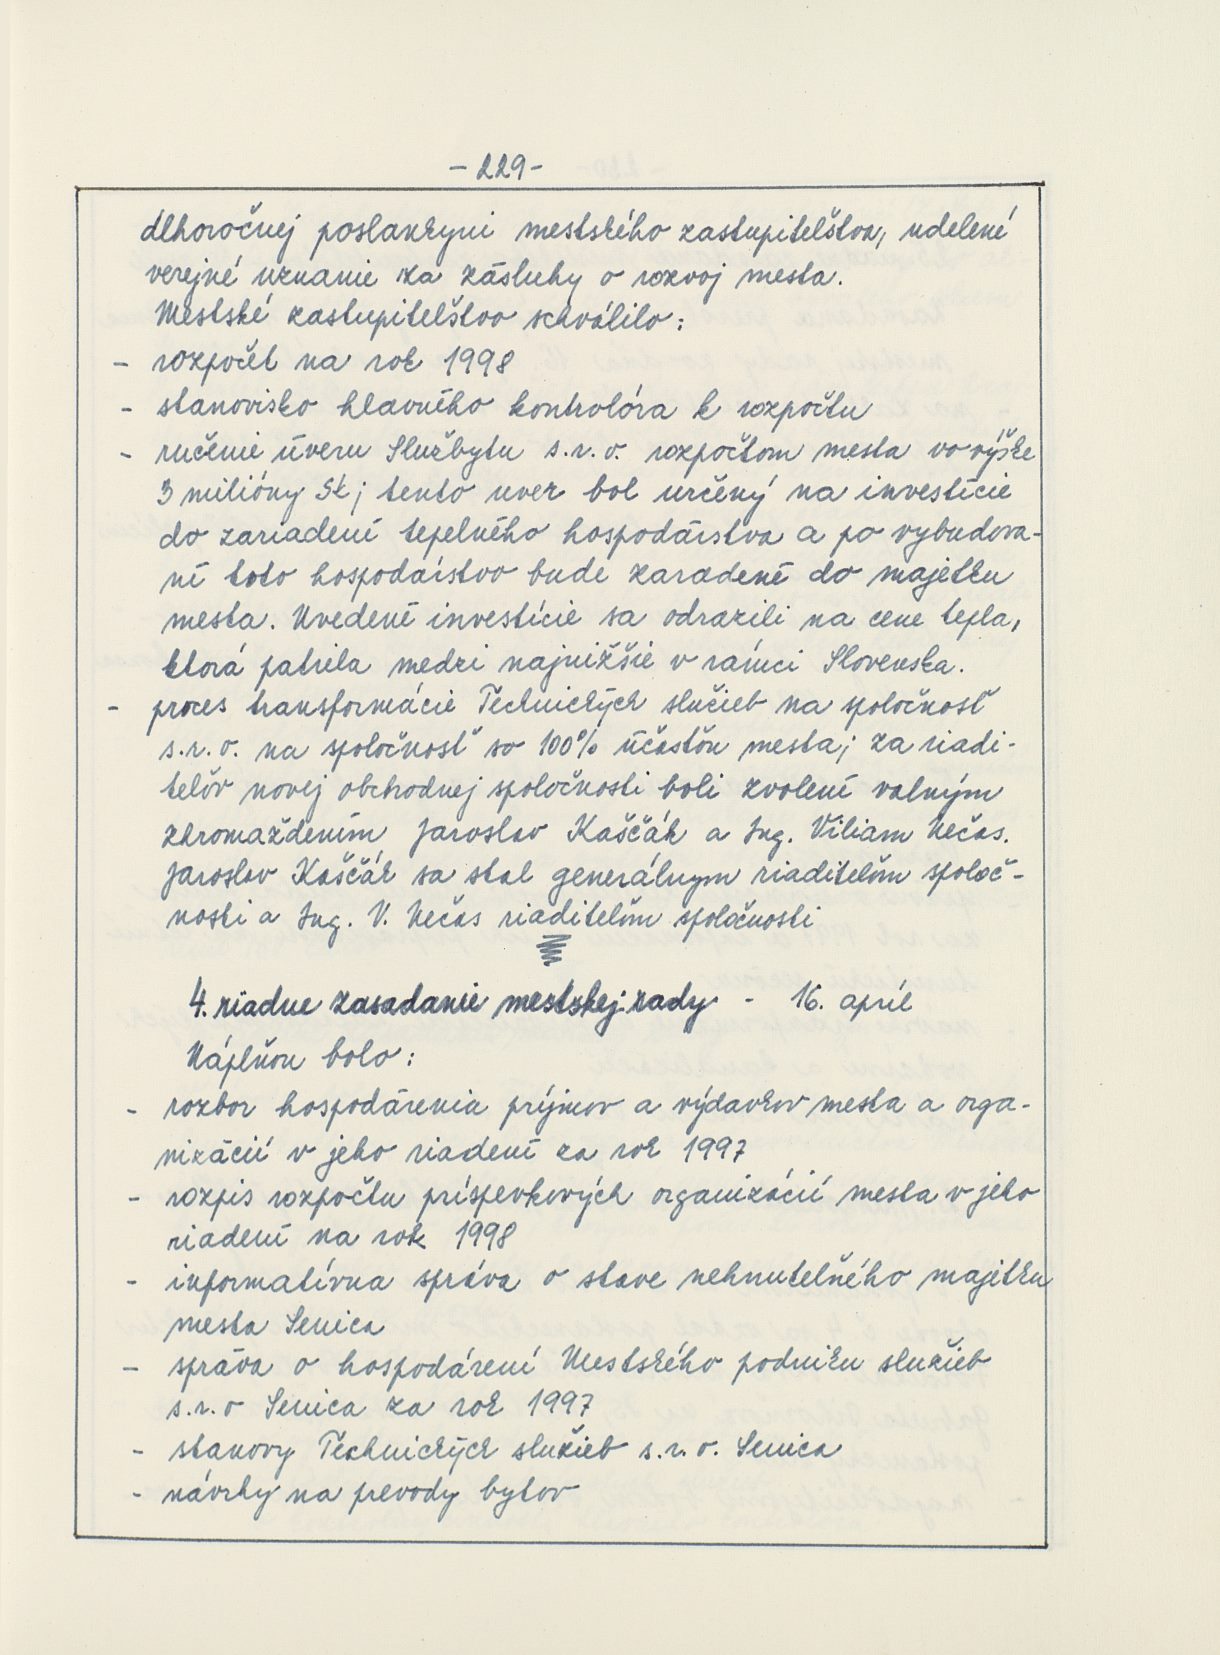 - 229 -
dlhoročnej poslankyni mestského zastupiteľstva, udelené
verejné uznanie za zásluhy o rozvoj mesta.
Mestské zastupiteľstvo schválilo:
- rozpočet na rok 1998
- stanovisko hlavného kontrolóra k rozpočtu
- ručenie úveru Službytu s.r.o. rozpočtom mesta vo výške
3 milióny Sk; tento uver bol určený na investície
do zariadení tepelného hospodárstva a po vybudova-
ní toto hospodárstvo bude zaradené do majetku
mesta. Uvedené investície sa odrazili na cene tepla,
ktorá patrila medzi najnižšie v rámci Slovenska.
- proces transformácie Technických služieb na spoločnosť
s.r.o. na spoločnosť so 100% účasťou mesta; za riadi-
teľov novej obchodnej spoločnosti boli zvolení valným
zhromaždením Jaroslav Kaščák a Ing. Viliam Nečas.
Jaroslav Kaščák sa stal generálnym riaditeľom spoloč-
nosti a Ing. V. Nečas riaditeľom spoločnosti
4. riadne zasadanie mestskej rady - 16. apríl
Náplňou bolo:
- rozbor hospodárenia príjmov a výdavkov mesta a orga-
nizácií v jeho riadení za rok 1997
- rozpis rozpočtu príspevkových organizácií mesta v jeho
riadení na rok 1998
- informatívna správa o stave nehnuteľného majetku
mesta Senica
- správa o hospodárení Mestského podniku služieb
s.r.o Senica za rok 1997
- stanovy Technických služieb s.r.o. Senica
- návrhy na prevody bytov